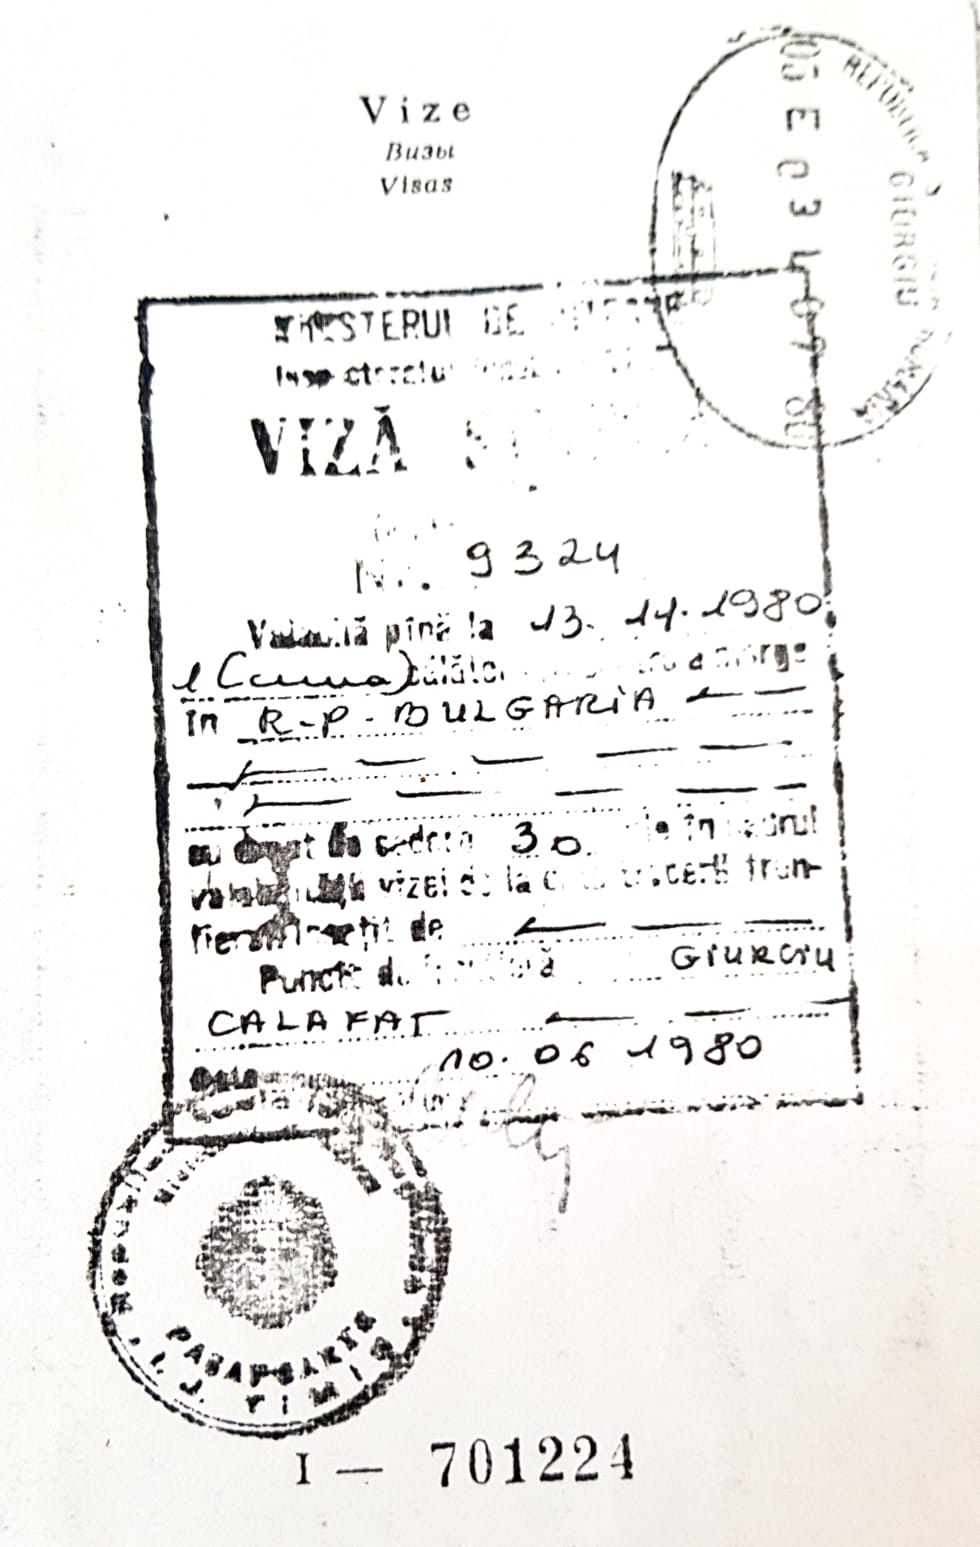 Vize
Визы
Visas
REPUBLICA
ROMÂNĂ
GIURGIU
MINISTERUL DE
Inspectoratul
VIZĂ
Nr. 9324
Valabilă pînă la 13. 11. 1980
1 (una) călător a merge
în R-P-BULGARIA
cu drept de ședere 30 zile în cadrul
valabilității vizei de la data trecerii fron-
tierei
de
Puncte de frontieră GIURGIU
CALAFAT
Data 10. 06 1980
PAȘAPOARTE
TIMIȘ
I — 701224